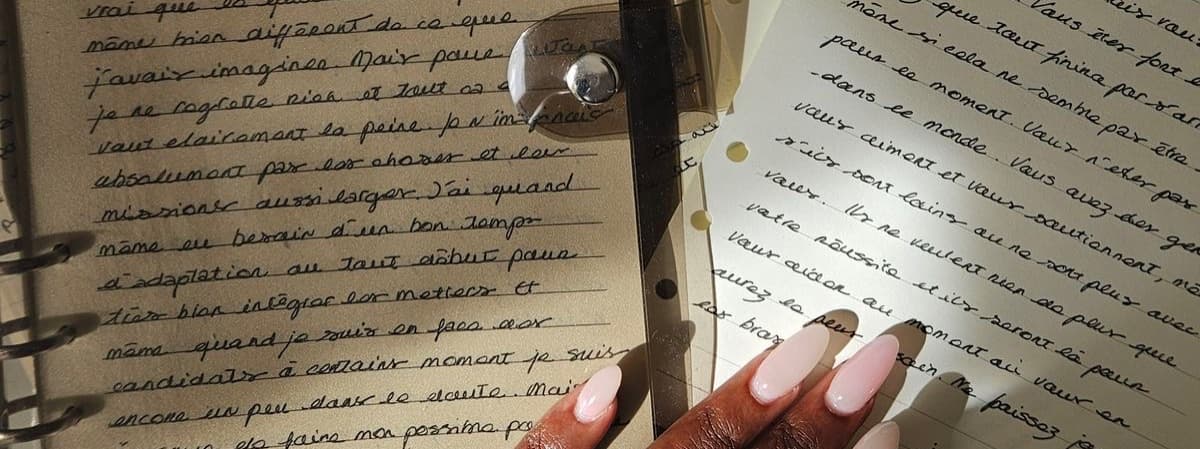 vrai que
même bien différent de ce que
j'avais imaginer. Mais pour autant
je ne regrette rien et tout ça
vaut clairement la peine. Je n'imaginais
absolument pas les choses et leur
missions aussi larges. J'ai quand
même eu besoin d'un bon temps
d'adaptation au tout début pour
très bien intégrer les metiers et
même quand je suis en face des
candidats à certains moment je suis
encore un peu dans le doute. Mais
de faire mon possible
Vous êtes fort
que tout finira par s'arr
même si cela ne semble pas être
pour le moment. Vous n'êtes pas
dans ce monde. Vous avez des gen
vous aiment et vous soutiennent, mê
s'ils sont loins ou ne sont plus avec
vous. Ils ne veulent rien de plus que
votre réussite et ils seront là pour
vous aider au moment où vous en
aurez le plus besoin. Ne baissez ja
les bras